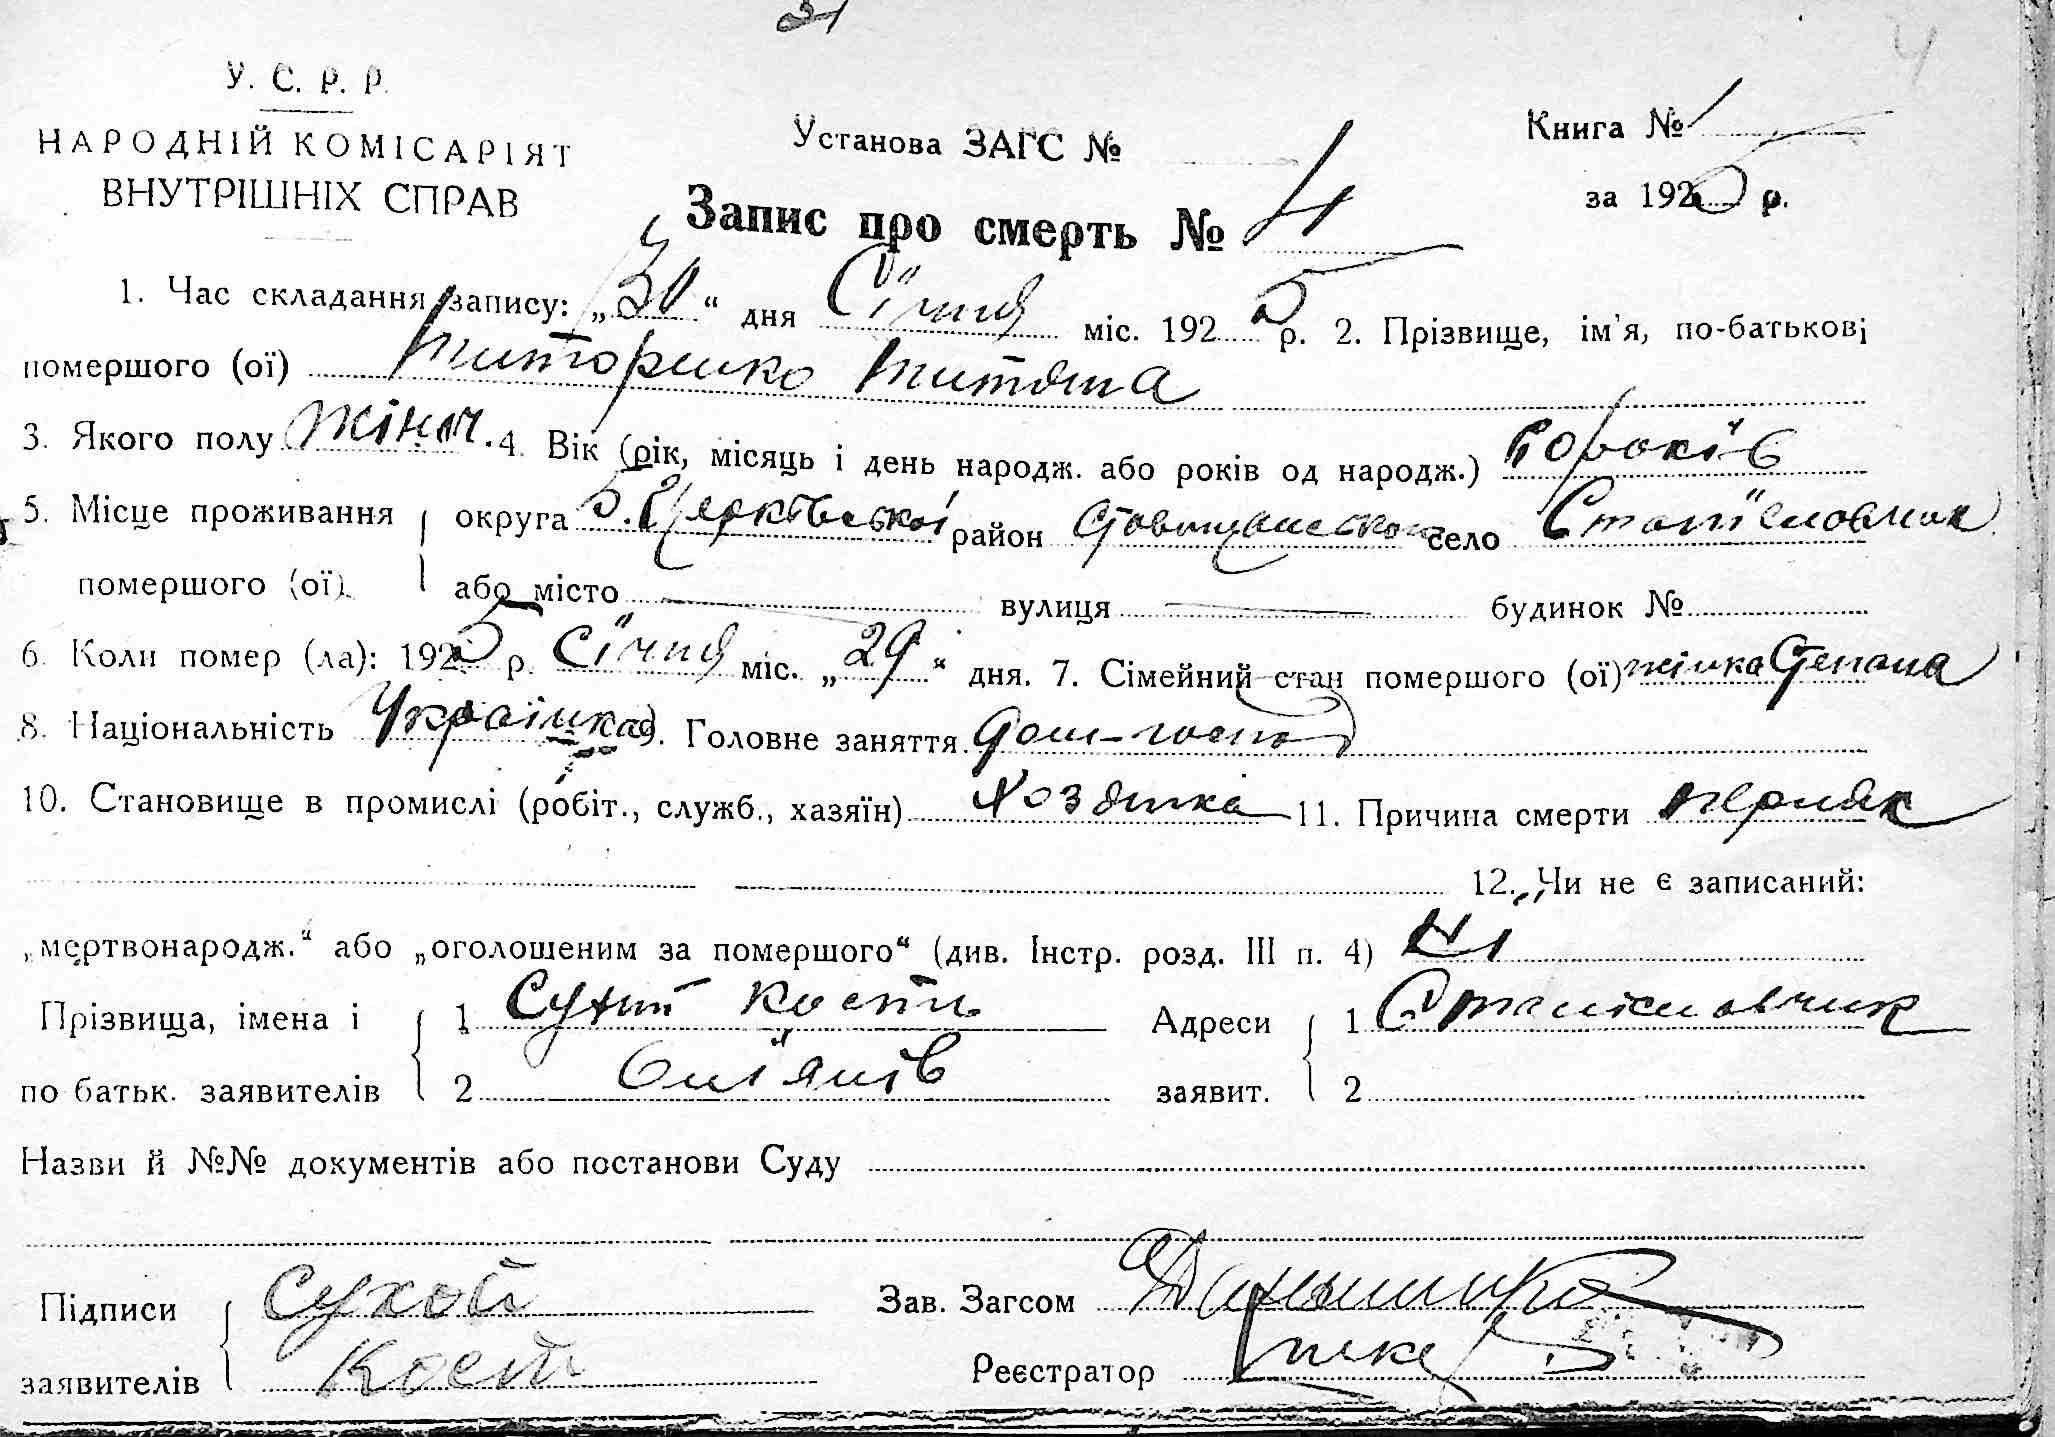 31
4
У. С. Р. Р.
НАРОДНІЙ КОМІСАРІЯТ
ВНУТРІШНІХ СПРАВ
Установа ЗАГС №
Книга № 1
за 1925 р.
Запис про смерть № 4
1. Час складання запису: „30“ дня Січня міс. 1925 р. 2. Прізвище, ім'я, по-батькові
помершого (ої) Титаренко Титяна
3. Якого полу жіноч. 4. Вік (рік, місяць і день народж. або років од народж.) років
5. Місце проживання округа Б. Церківської район село Станіславчик
помершого (ої) або місто вулиця будинок №
6. Коли помер (ла): 1925 р. Січня міс. „29“ дня. 7. Сімейний стан помершого (ої) жінка Степана
8. Національність Українка 9. Головне заняття дом-господ
10. Становище в промислі (робіт., служб., хазяїн) Хозяйка 11. Причина смерти
12. Чи не є записаний:
„мертвонародж.“ або „оголошеним за помершого“ (див. Інстр. розд. III п. 4) Ні
Прізвища, імена і 1 Сухий Кость Адреси 1 Станіславчик
по батьк. заявителів 2 заявит. 2
Назви й №№ документів або постанови Суду
Підписи Сухой Зав. Загсом
заявителів Кост Реєстратор